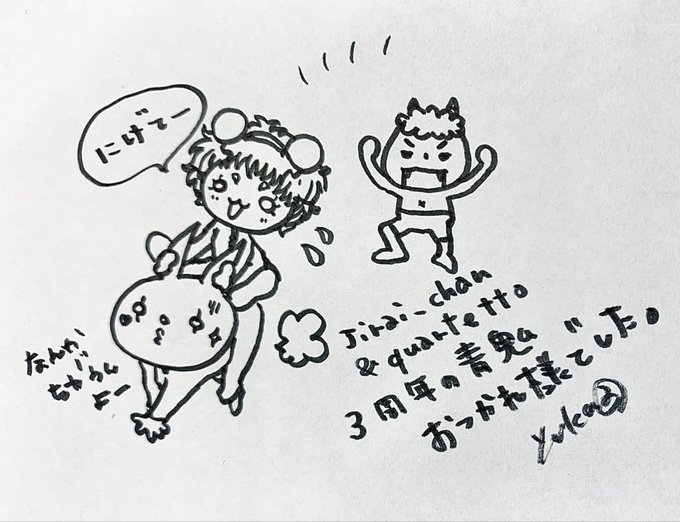 にげてー
なんか
ちがうん
よー
Jirai-chan
& quartetto
3周年の青鬼
おつかれ様でした。